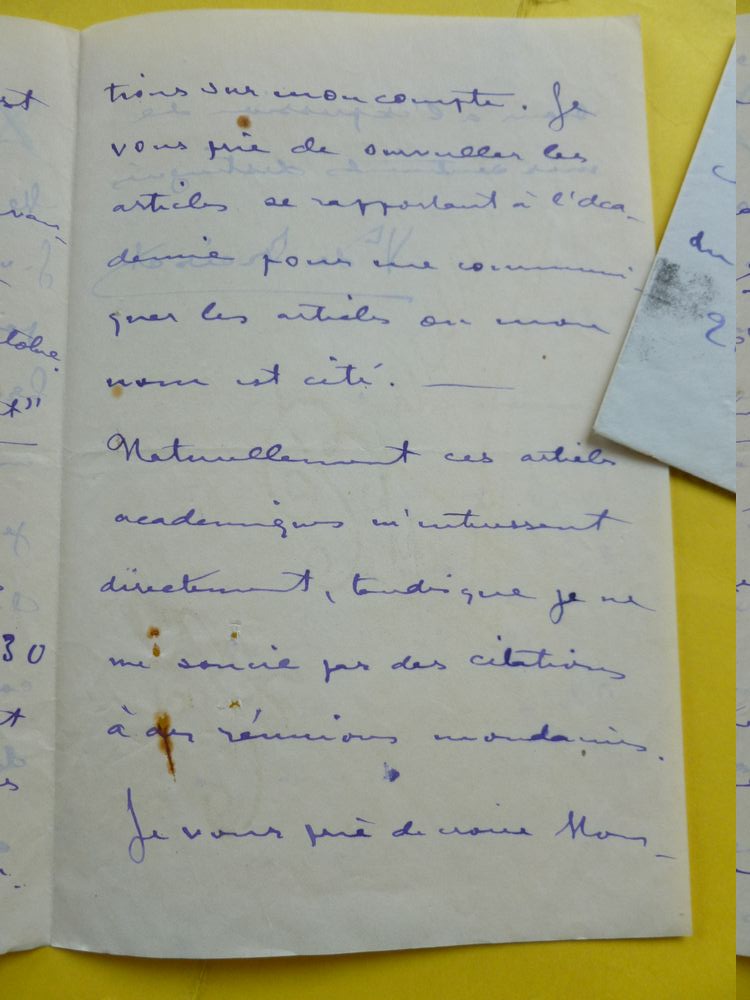 tions sur mon compte. Je
vous prie de surveiller les
articles se rapportant à l'Aca-
démie pour me communi-
quer les articles ou mon
nom est cité. —
Naturellement ces articles
academiques m'interessent
directement, tandis que je ne
me soucie pas des citations
à des réunions mondaines.
Je vous prie de croire Mons-
30
du